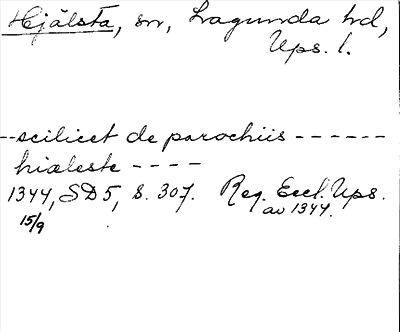 Hjälsta, sn, Lagunda hd,
Ups. l.
--scilicet de parochiis ------
hiæleste ----
1344, SD5, s. 307. Reg. Eccl. Ups.
15/9 av 1344.